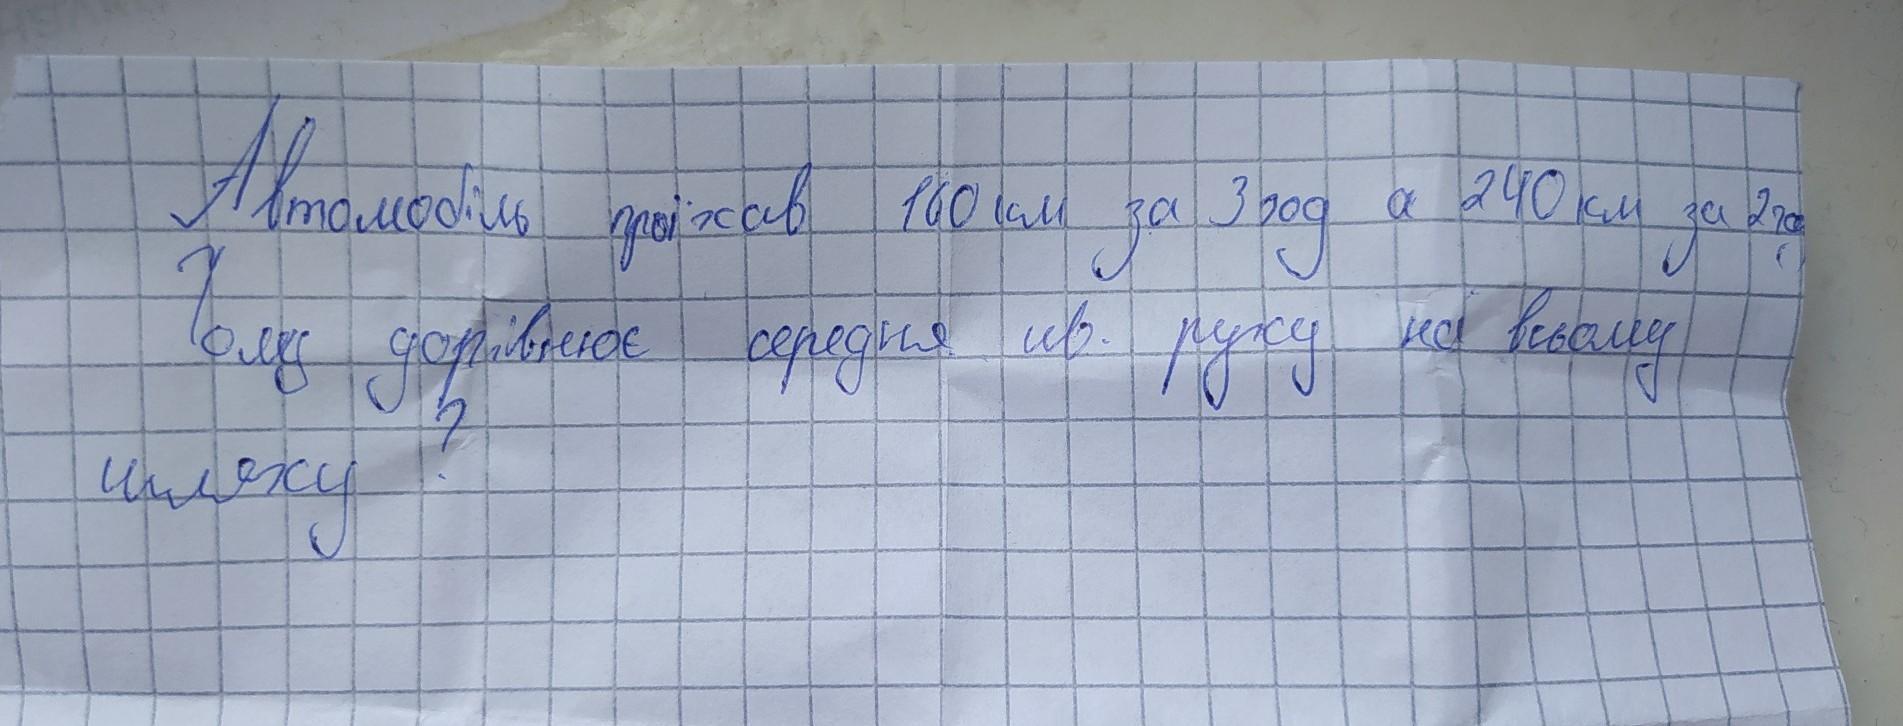 Автомобіль проїхав 160 км за 3 год а 240 км за 2 год
Чому дорівнює середня шв. руху на всьому
шляху ?